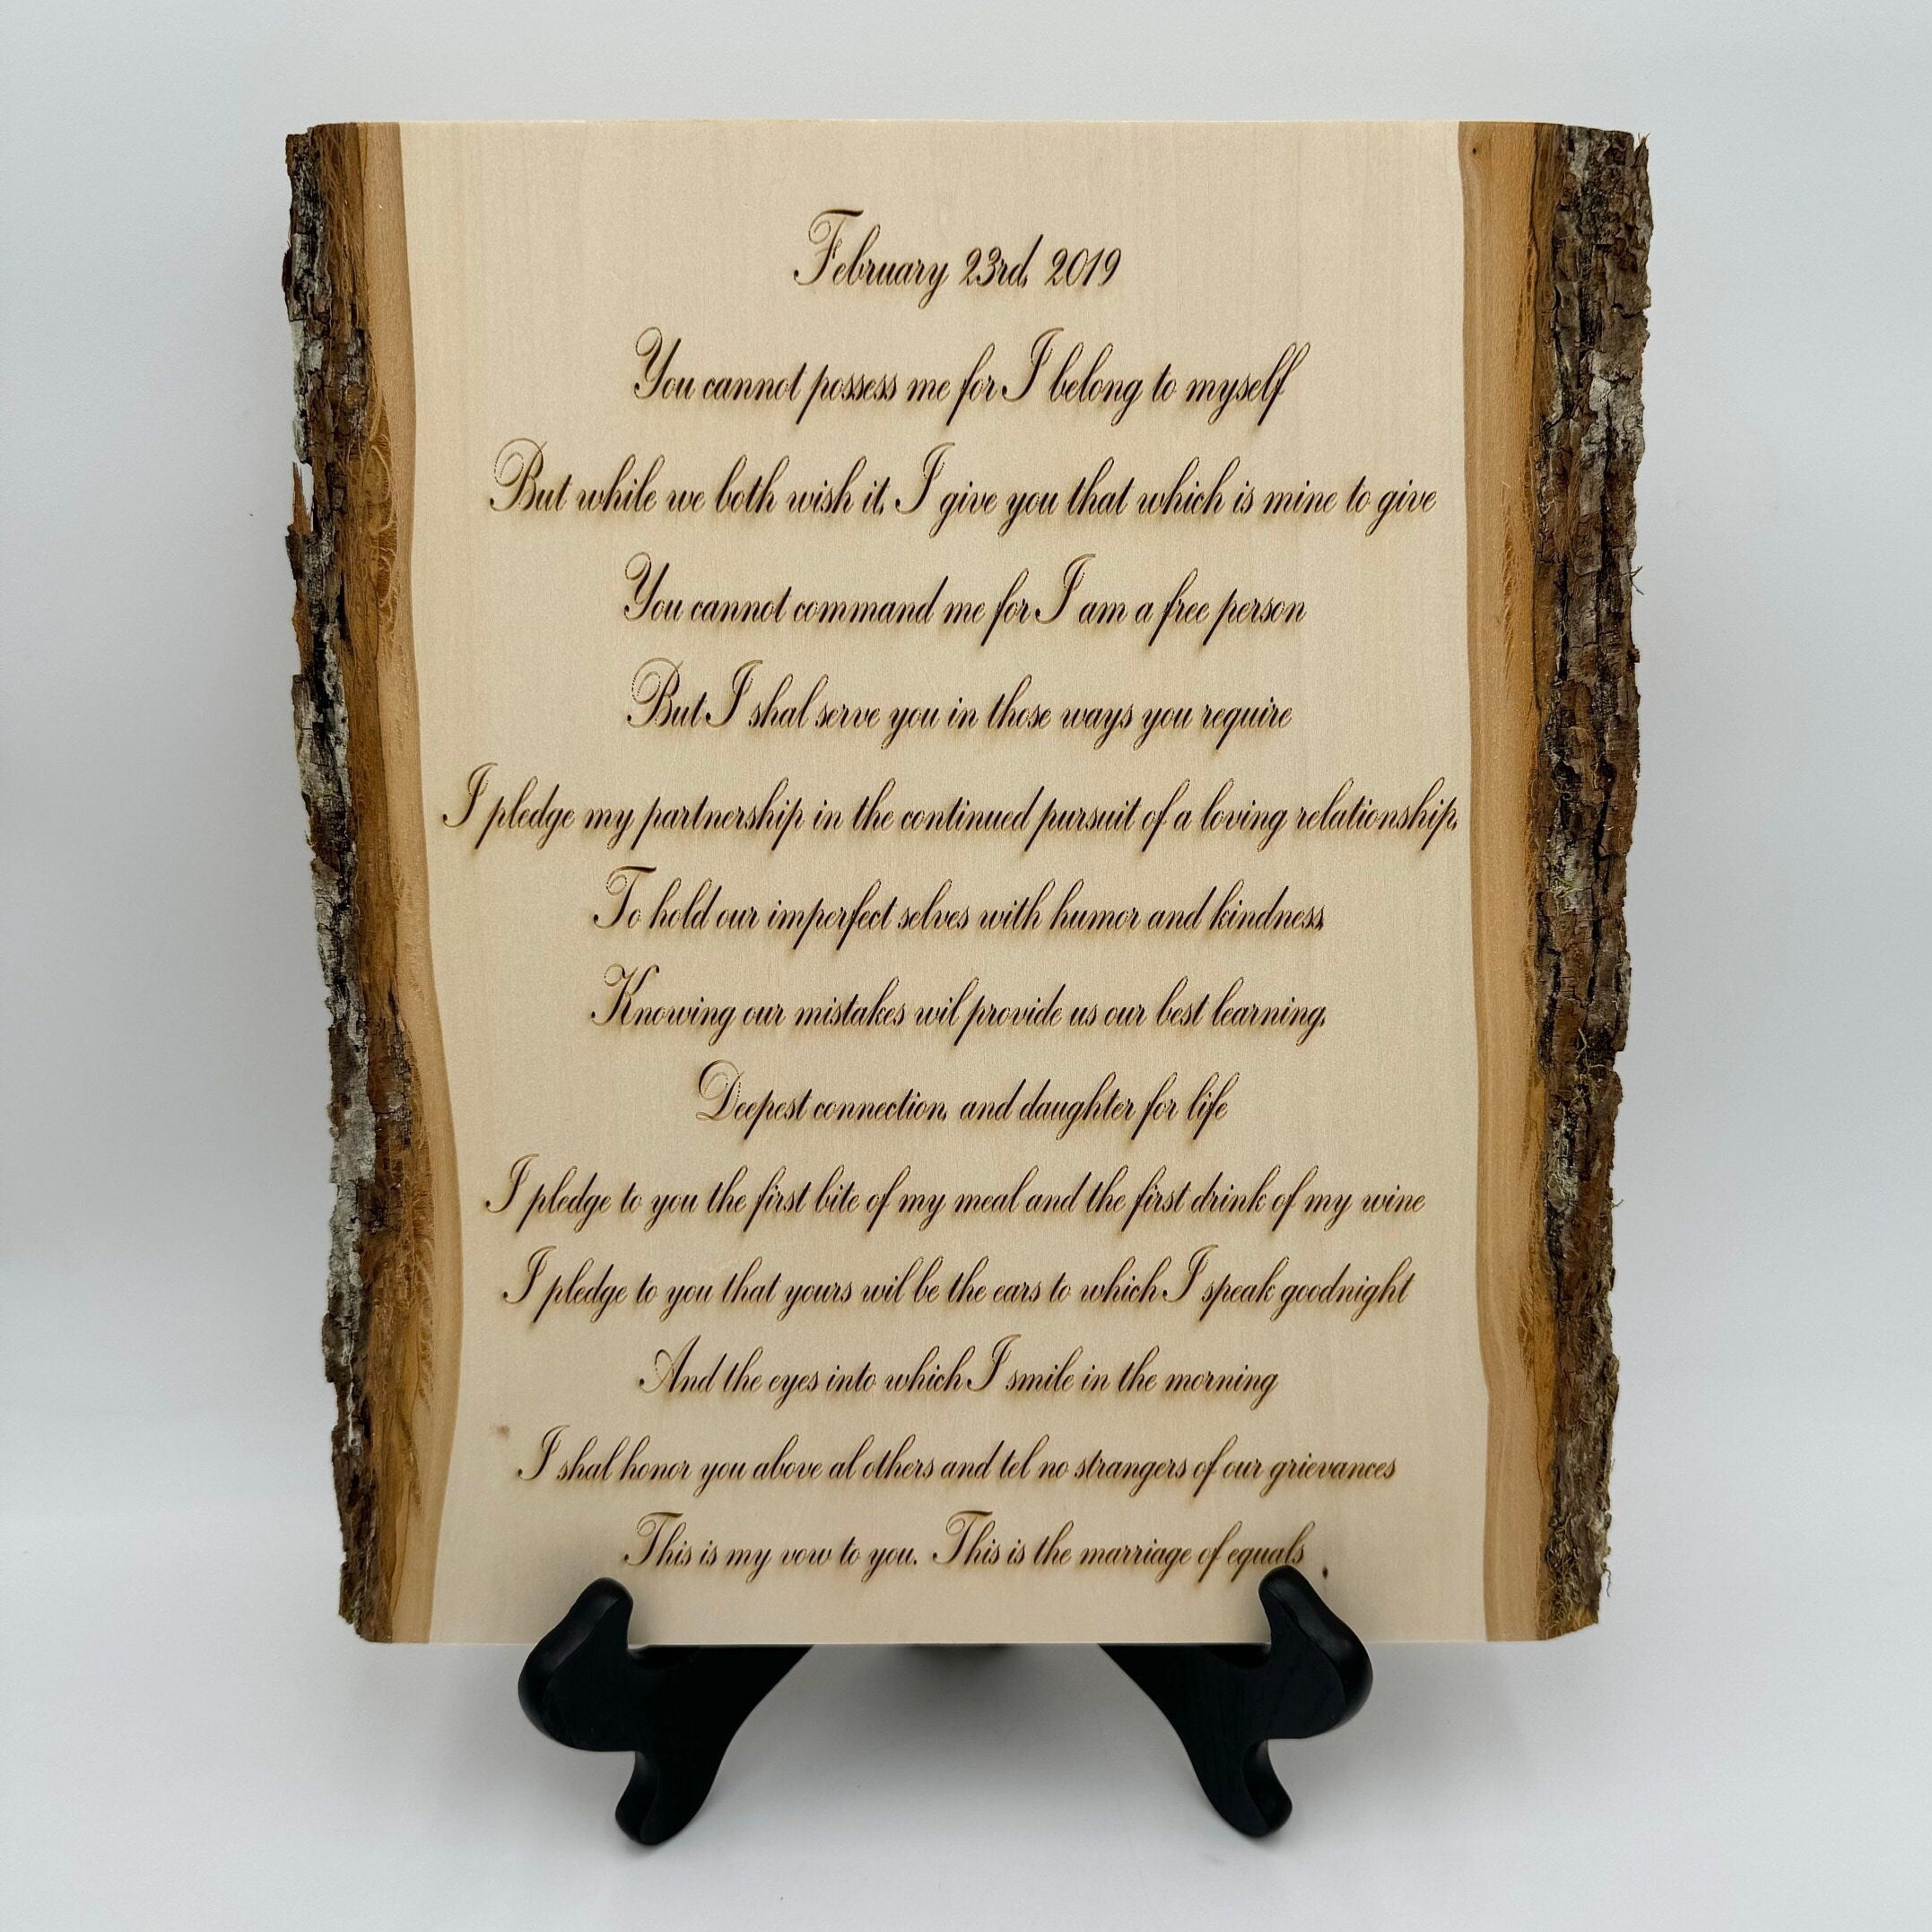 February 23rd, 2019
You cannot possess me for I belong to myself
But while we both wish it, I give you that which is mine to give
You cannot command me for I am a free person
But I shal serve you in those ways you require
I pledge my partnership in the continued pursuit of a loving relationship,
To hold our imperfect selves with humor and kindness,
Knowing our mistakes wil provide us our best learning,
Deepest connection, and daughter for life
I pledge to you the first bite of my meal and the first drink of my wine
I pledge to you that yours wil be the ears to which I speak goodnight
And the eyes into which I smile in the morning
I shal honor you above al others and tel no strangers of our grievances
This is my vow to you. This is the marriage of equals